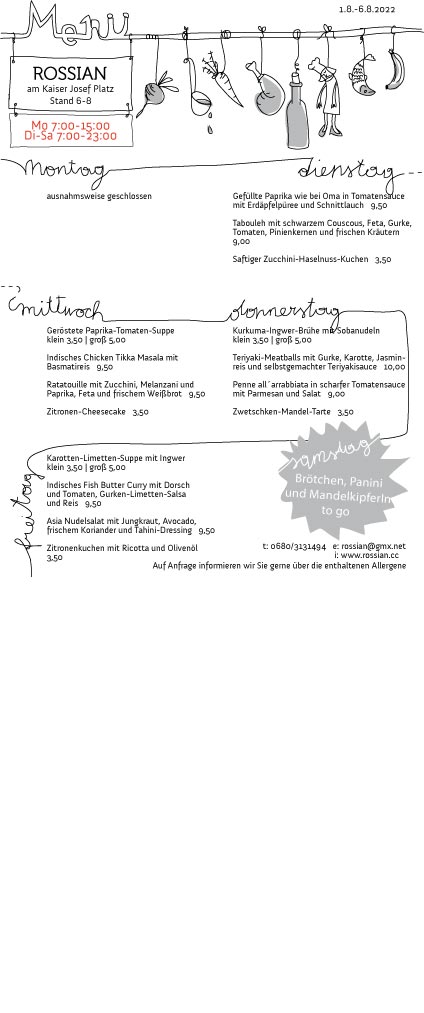 Menü
1.8.-6.8.2022
ROSSIAN
am Kaiser Josef Platz
Stand 6-8
Mo 7:00-15:00
Di-Sa 7:00-23:00
montag
ausnahmsweise geschlossen
dienstag
Gefüllte Paprika wie bei Oma in Tomatensauce
mit Erdäpfelpüree und Schnittlauch 9,50
Tabouleh mit schwarzem Couscous, Feta, Gurke,
Tomaten, Pinienkernen und frischen Kräutern
9,00
Saftiger Zucchini-Haselnuss-Kuchen 3,50
mittwoch
Geröstete Paprika-Tomaten-Suppe
klein 3,50 | groß 5,00
Indisches Chicken Tikka Masala mit
Basmatireis 9,50
Ratatouille mit Zucchini, Melanzani und
Paprika, Feta und frischem Weißbrot 9,50
Zitronen-Cheesecake 3,50
donnerstag
Kurkuma-Ingwer-Brühe mit Sobanudeln
klein 3,50 | groß 5,00
Teriyaki-Meatballs mit Gurke, Karotte, Jasmin-
reis und selbstgemachter Teriyakisauce 10,00
Penne all´arrabbiata in scharfer Tomatensauce
mit Parmesan und Salat 9,00
Zwetschken-Mandel-Tarte 3,50
freitag
Karotten-Limetten-Suppe mit Ingwer
klein 3,50 | groß 5,00
Indisches Fish Butter Curry mit Dorsch
und Tomaten, Gurken-Limetten-Salsa
und Reis 9,50
Asia Nudelsalat mit Jungkraut, Avocado,
frischem Koriander und Tahini-Dressing 9,50
Zitronenkuchen mit Ricotta und Olivenöl
3,50
samstag
Brötchen, Panini
und Mandelkipferln
to go
t: 0680/3131494 e: rossian@gmx.net
i: www.rossian.cc
Auf Anfrage informieren wir Sie gerne über die enthaltenen Allergene